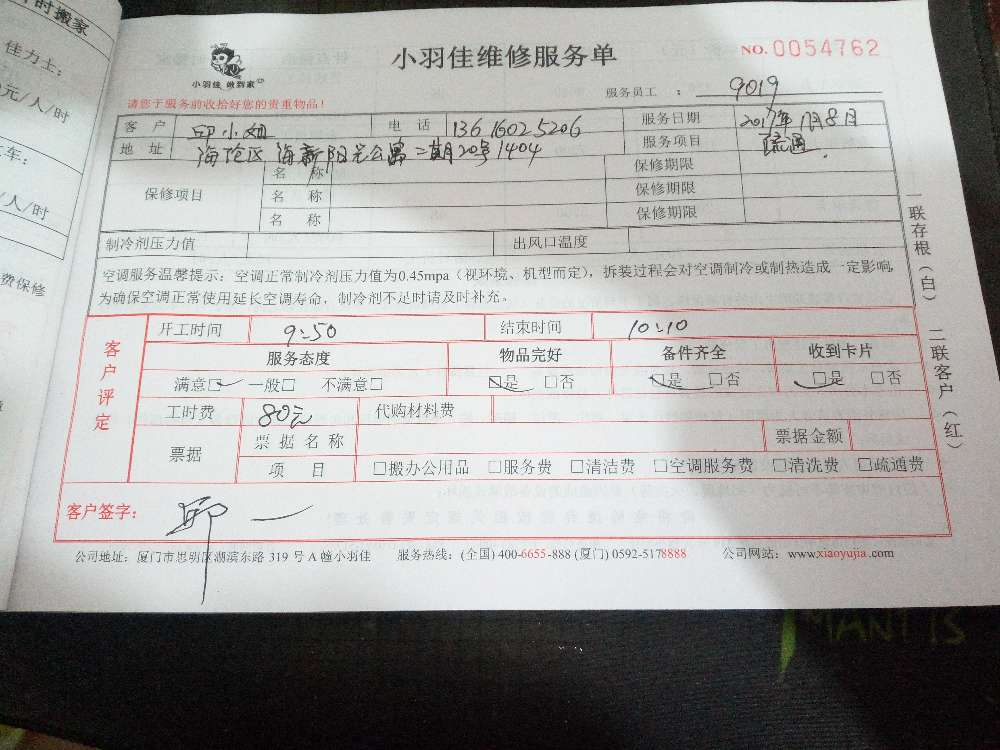 时搬家
佳力士：
元/人/时
车：
人/时
费保修
小羽佳 做到家
小羽佳维修服务单
NO.0054762
服务员工 ： 9019
请您于服务前收拾好您的贵重物品！
客 户 邱小姐 电 话 13616025206 服务日期 2017年 月8日
地 址 海沧区海新阳光公寓二期20号1404 服务项目 疏通
保修项目 名 称 保修期限
名 称 保修期限
名 称 保修期限
制冷剂压力值 出风口温度
空调服务温馨提示：空调正常制冷剂压力值为0.45mpa（视环境、机型而定），拆装过程会对空调制冷或制热造成一定影响，
为确保空调正常使用延长空调寿命，制冷剂不足时请及时补充。
客户评定
开工时间 9:50 结束时间 10:10
服务态度 物品完好 备件齐全 收到卡片
满意□ 一般□ 不满意□ □是 □否 □是 □否 □是 □否
工时费 80元 代购材料费
票据 票据名称 票据金额
项 目 □搬办公用品 □服务费 □清洁费 □空调服务费 □清洗费 □疏通费
客户签字： 邱一
公司地址：厦门市思明区湖滨东路 319 号 A 幢小羽佳 服务热线：(全国) 400-6655-888 (厦门) 0592-5178888 公司网站：www.xiaoyujia.com
一联存根（白） 二联客户（红）
MANTIS